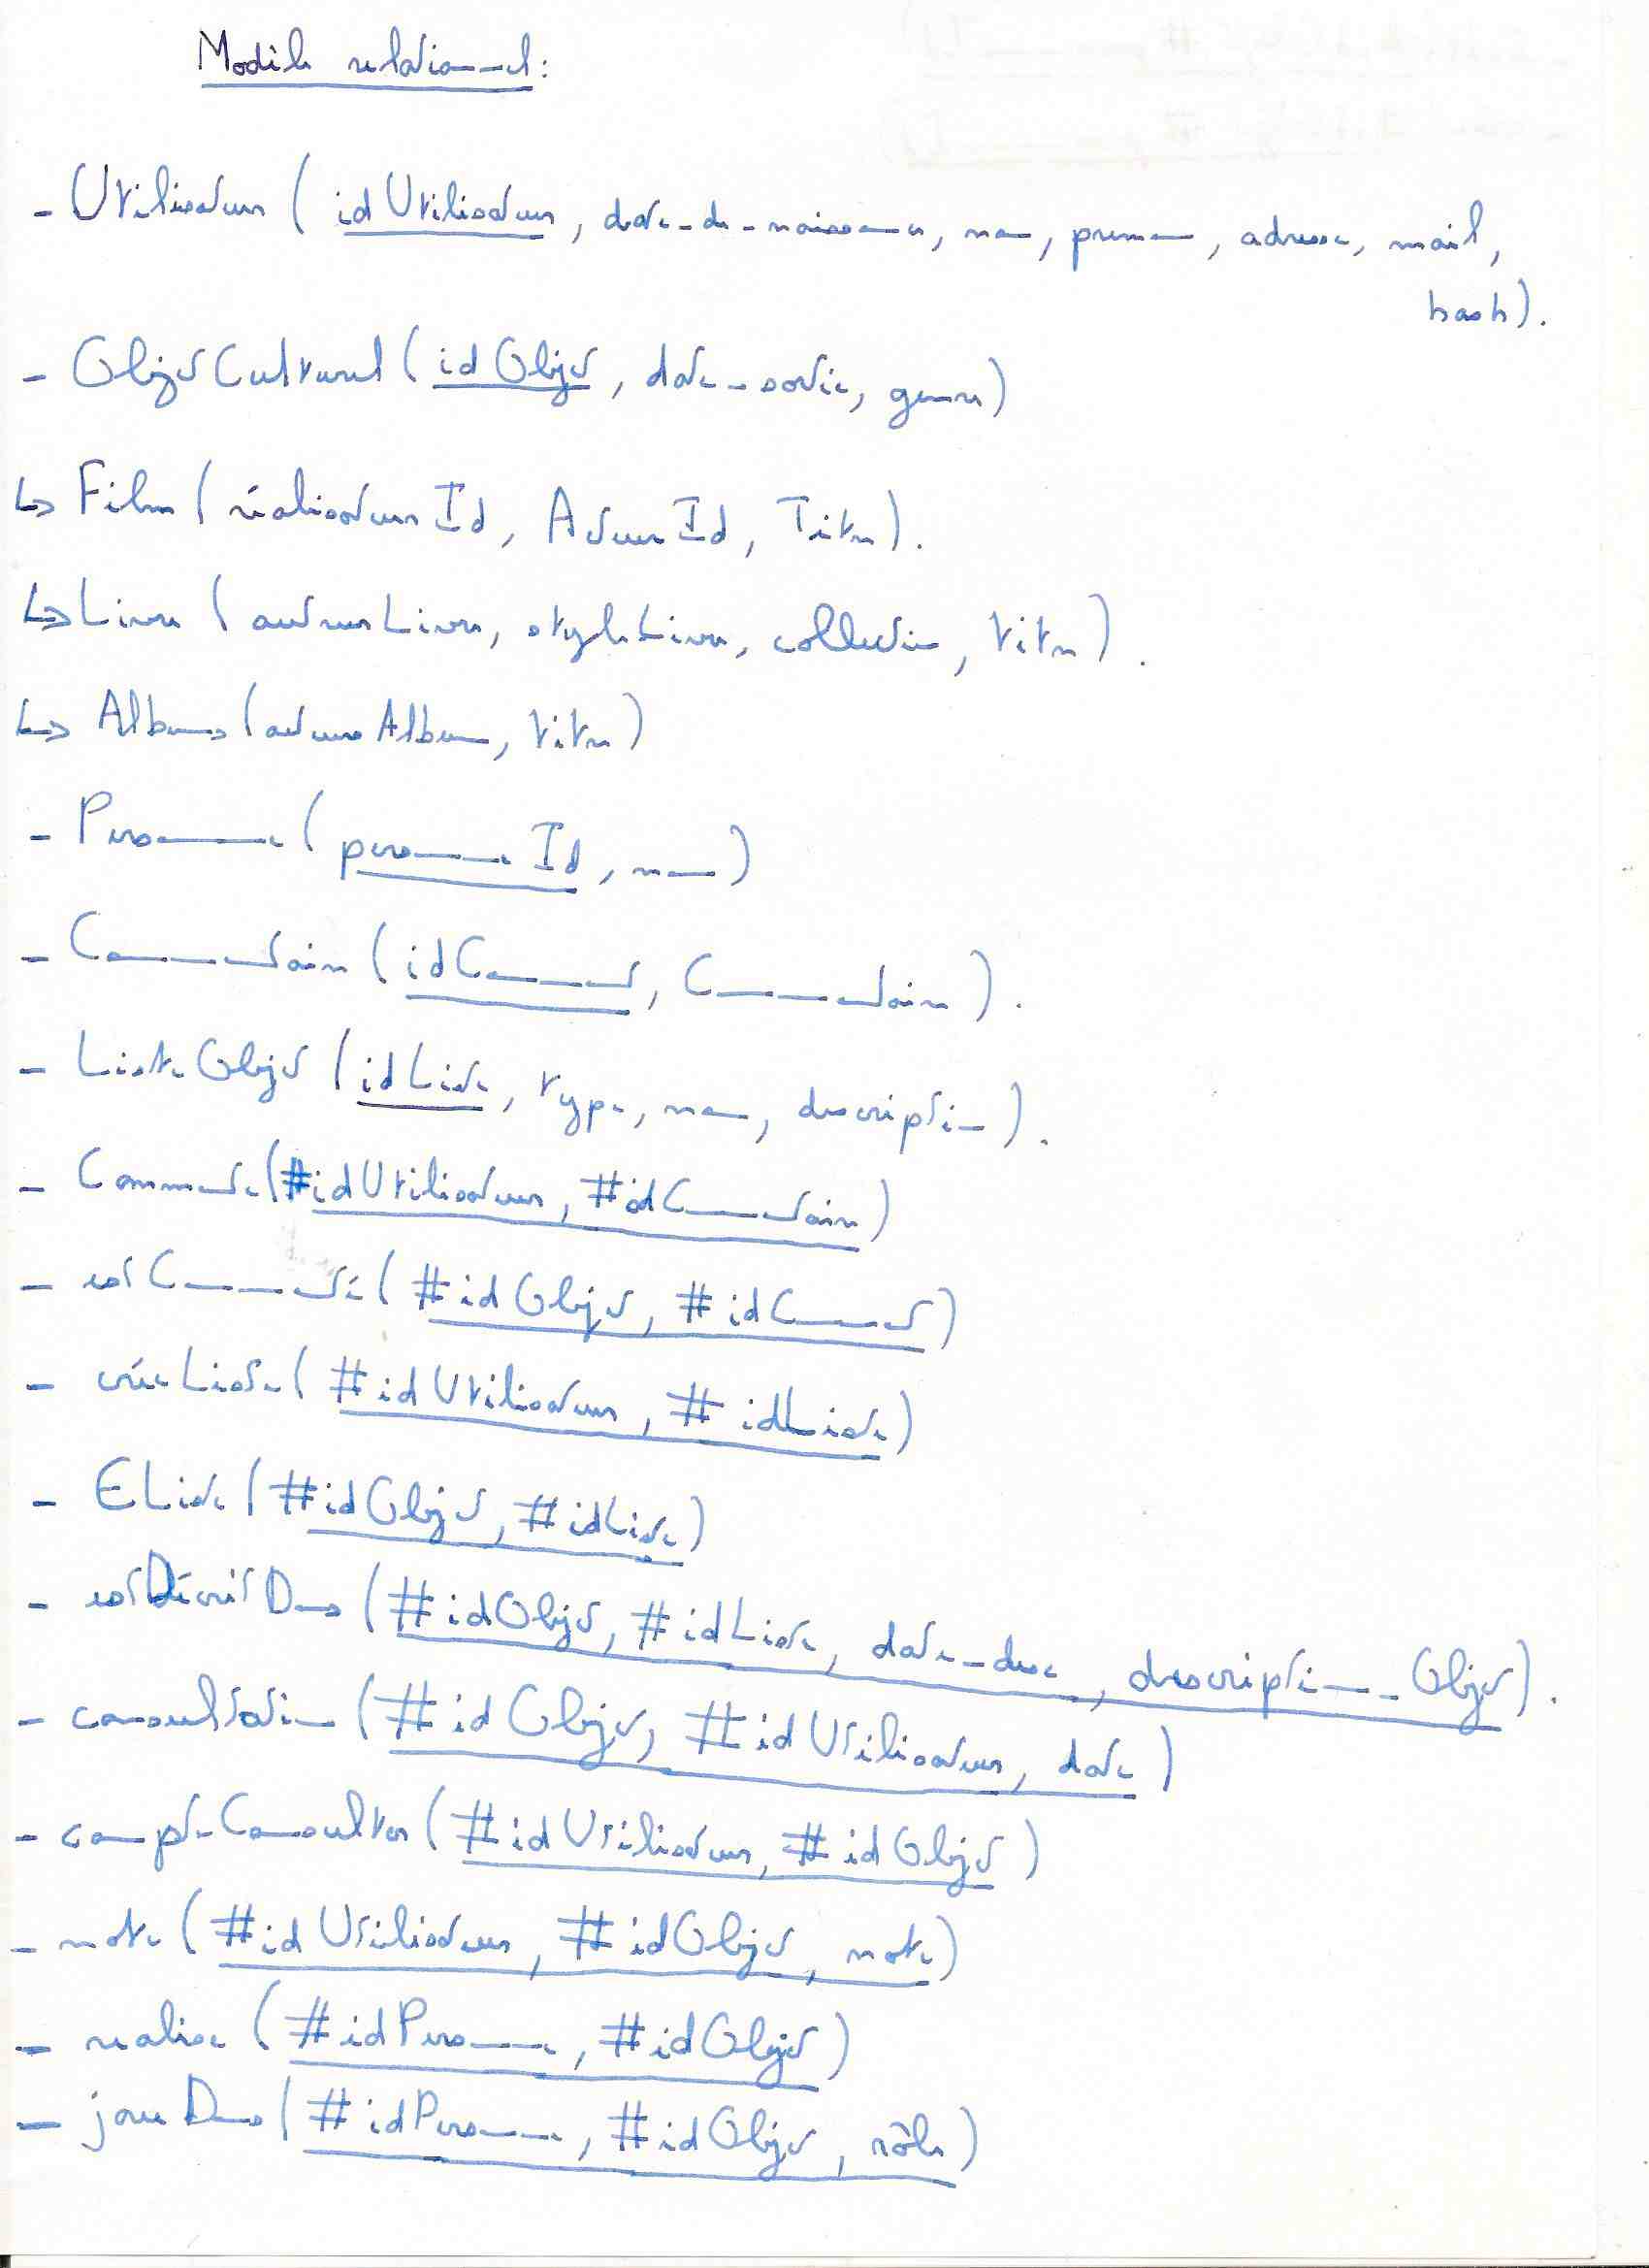 Modèle relationnel:
- Utilisateur (idUtilisateur, date_de_naissance, nom, prenom, adresse, mail,
hash).
- ObjetCulturel (idObjet, date_sortie, genre)
↳ Film (réalisateurId, ActeurId, Titre).
↳ Livre (auteurLivre, styleLivre, collection, titre).
↳ Albums (auteurAlbum, titre)
- Personne (personneId, nom)
- Commentaire (idComment, Commentaire).
- ListeObjet (idListe, type, nom, description).
- Commente (#idUtilisateur, #idCommentaire)
- estCommenté (#idObjet, #idComment)
- créeListe (#idUtilisateur, #idListe)
- EListe (#idObjet, #idListe)
- estDécritDans (#idObjet, #idListe, date_desc, description_Objet).
- consultation (#idObjet, #idUtilisateur, date)
- compteConsulter (#idUtilisateur, #idObjet)
- note (#idUtilisateur, #idObjet, note)
- realise (#idPersonne, #idObjet)
- joueDans (#idPersonne, #idObjet, rôle)